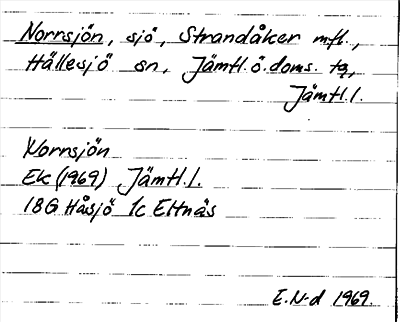 Norrsjön, sjö, Strandåker mfl.,
Hällesjö sn, Jämtl. ö. doms. tg,
Jämtl. l.
Norrsjön
Ek (1969) Jämtl. l.
18G Håsjö 1c Eltnäs
E.N-d 1969.